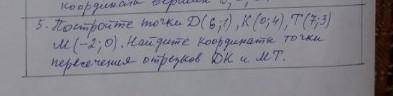 координаты вершин
5. Постройте точки D(6;1), K(0;4), T(7;3)
M(-2;0). Найдите координаты точки
пересечения отрезков DK и MT.